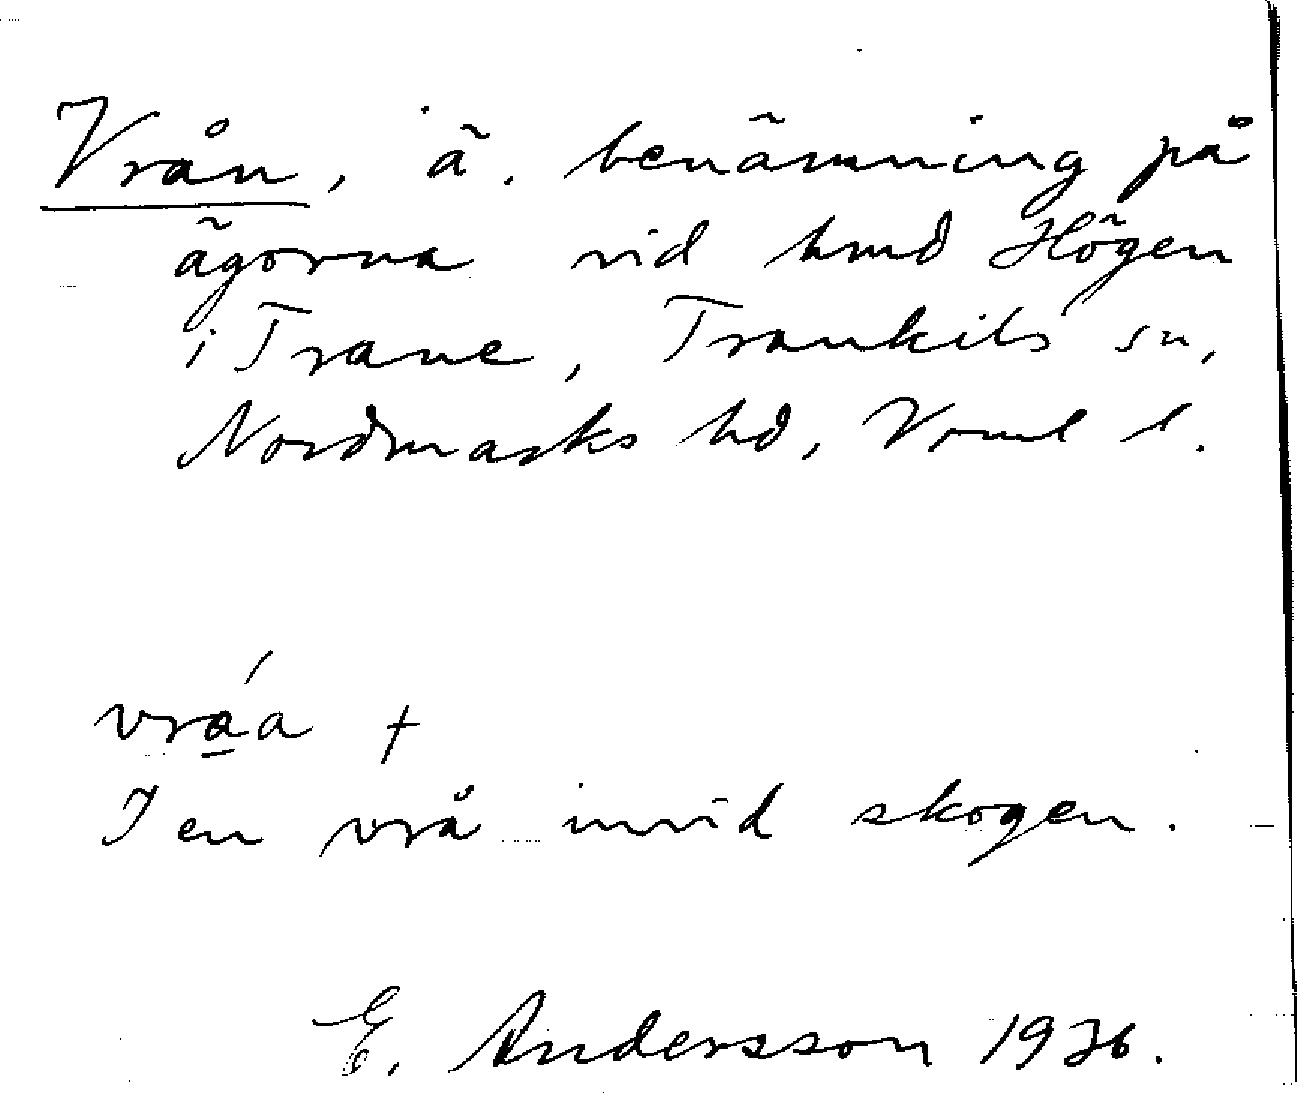 Vrån, ä. benämning på
ägorna vid hmd Högen
i Trane, Trankils sn,
Nordmarks hd, Vrml l.
vrá̱a +
I en vrå invid skogen.
E. Andersson 1936.